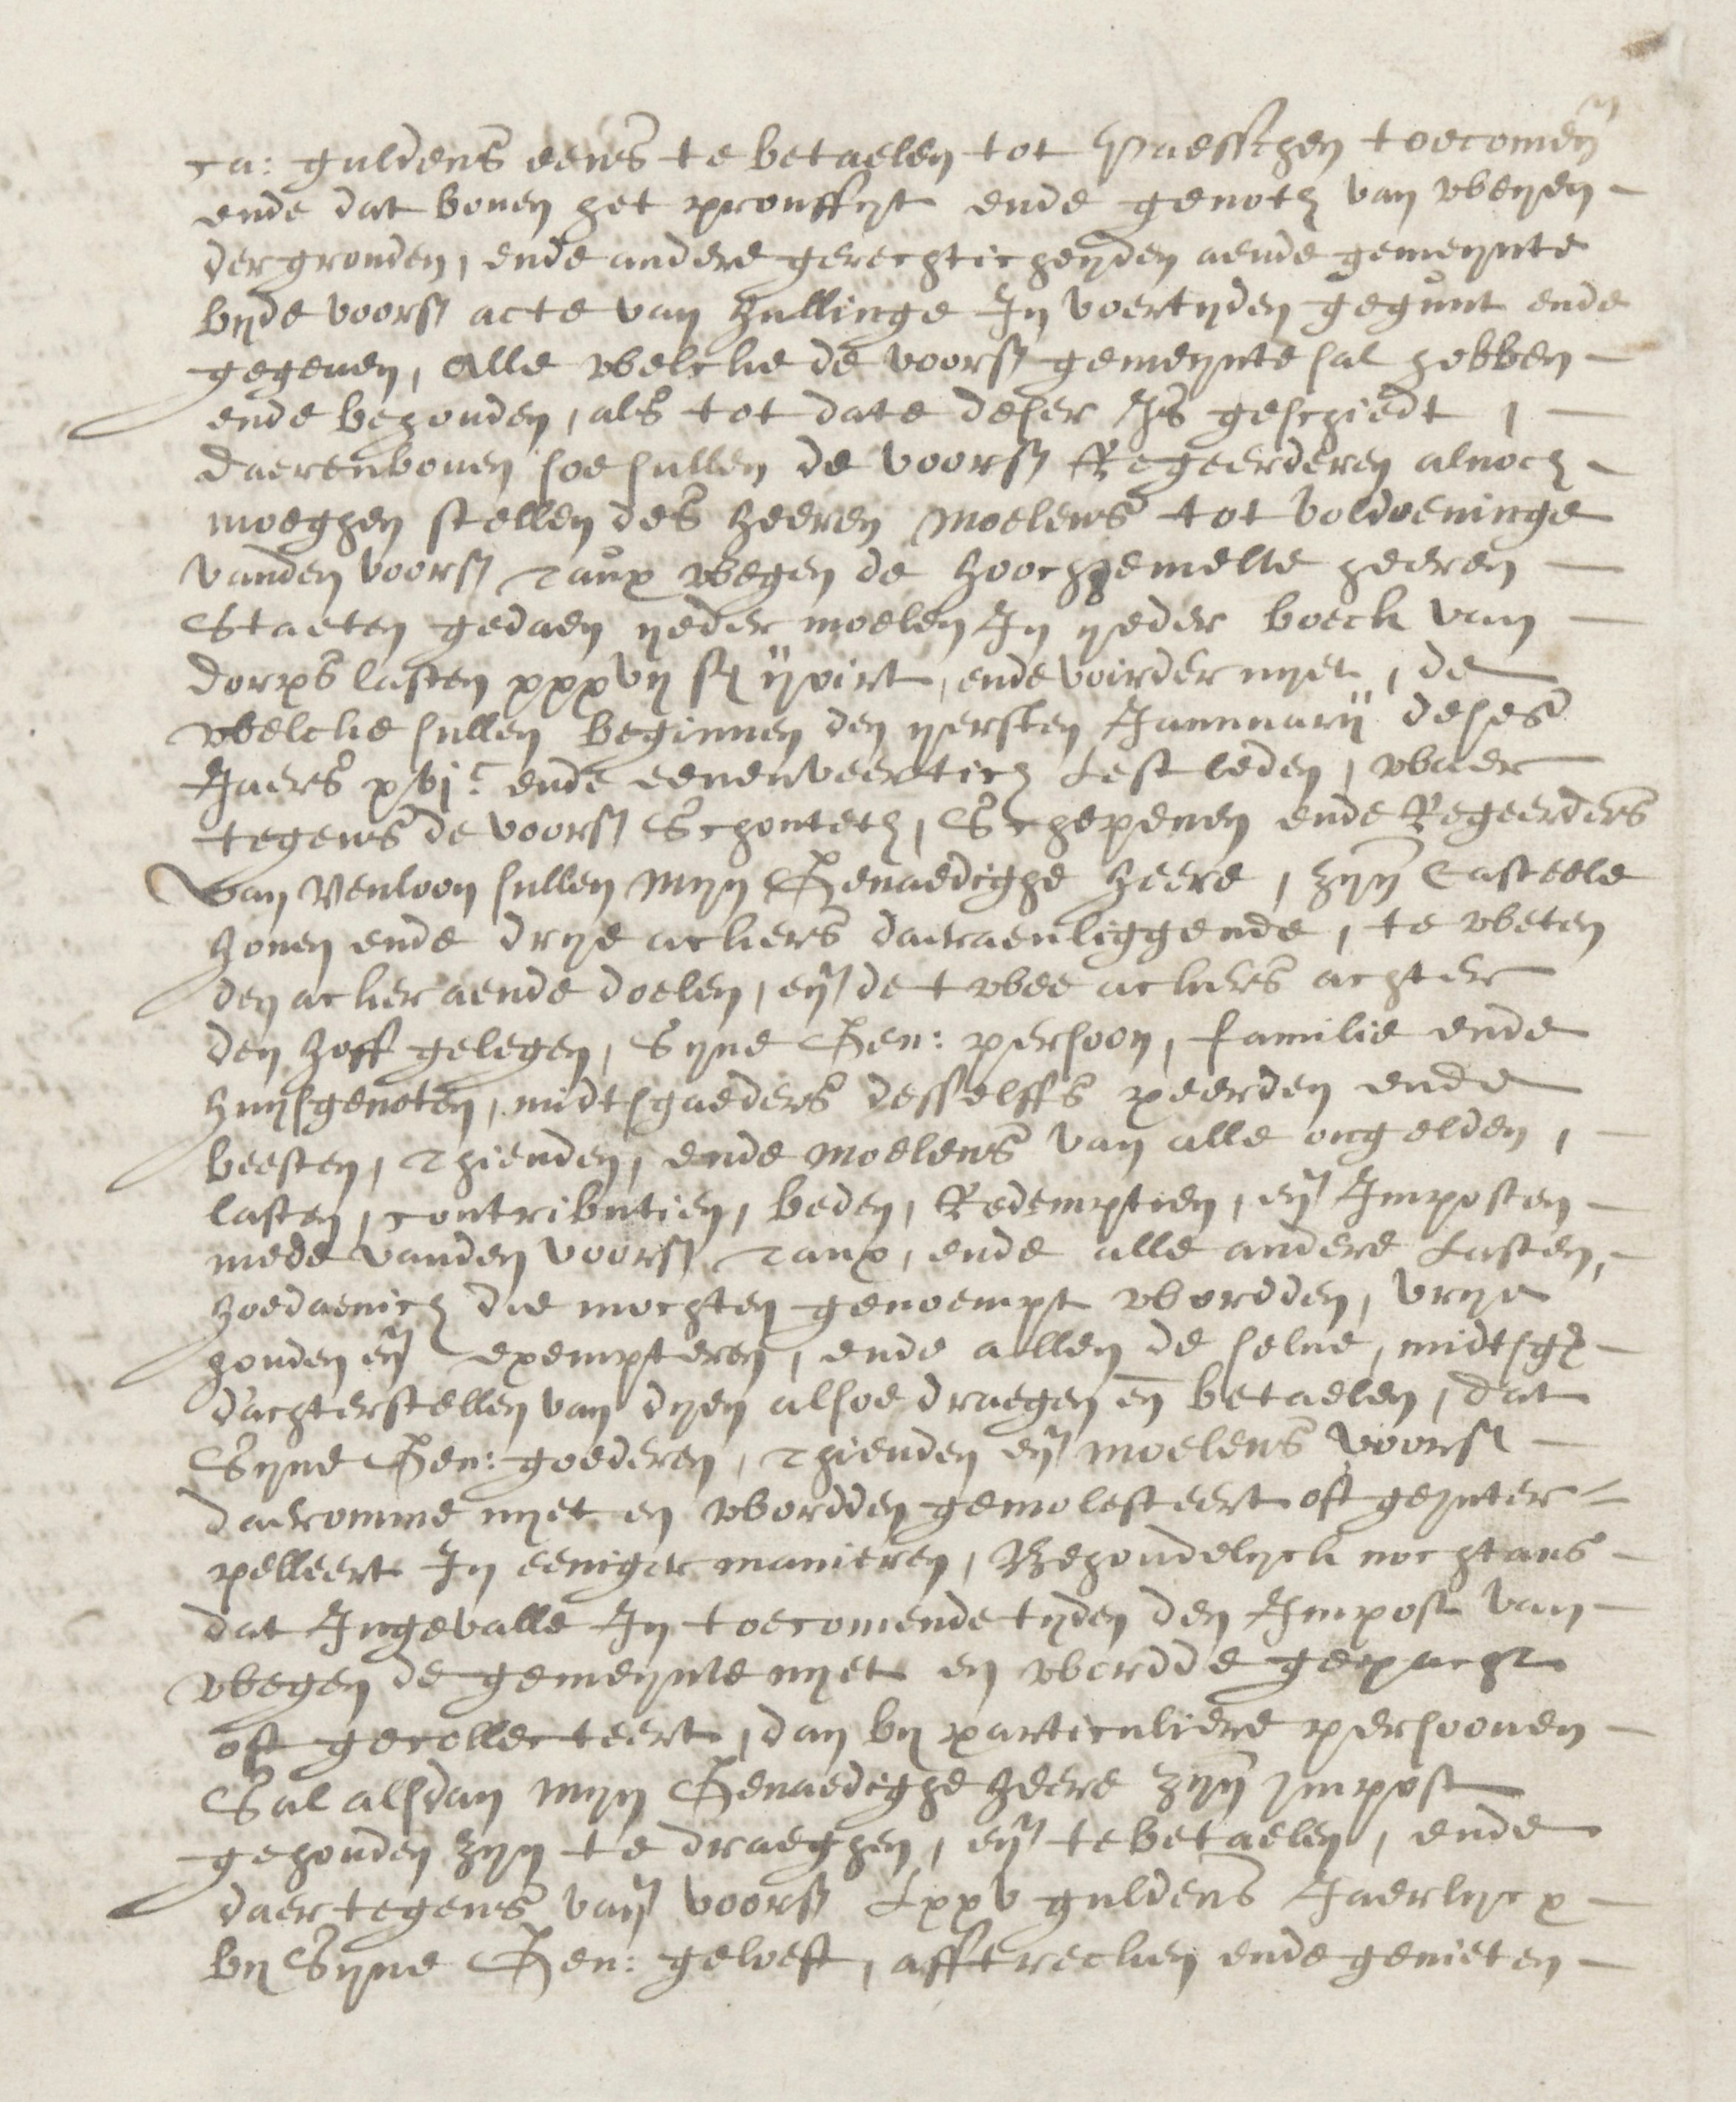 ca: guldens eens te betaelen tot Paesschen toecomen̄
ende dat bouen het prouffyt ende genoth van weyen
der gronden, ende andere gerechticheyden aende gemeynte
byde voors acte van Hullinge In voertyden gegunt ende
gegeuen, alle welcke de voors gemeynte sal hebben
ende behouden, als tot date deser Is geschiedt,
daerenbouen soe sullen de voors Regeerderen alnoch
moeghen stellen des Heeren moelens tot voldoeninge
vanden voors Taux wegen de Hoochgemelte heeren
Staeten gedaen yeder moelen In yeder boeck van
dorps lasten xxxvij st ij oirt, ende voirder nyet, de
welcke sullen beginnen den yersten Januuarij deses
Jaers xvjc ende eenenveertich Lestleden, waer
tegens de voors Schouteth, Schepenen ende Regeerders
Van Venloon sullen myn Genaedighe Heere, zyn Casteele
Houen ende drye ackers daeraenliggende, te weten
den acker aende doelen, en̄ de twee ackers achter
den Hoff gelegen, Syne Gen: persoon, familie ende
Huysgenoten, midtsgaeders desselffs peerden ende
beesten, Thienden, ende moelens van alle ongelden,
lasten, contributien, beden, Redemptien, en̄ Imposten
mede vanden voors Taux, ende alle andere Lasten,
Hoedaenich die mochten genoempt wordden, vrye
houden en̄ exempteren, ende allen de selue, midtsgs
d'achterstellen van dyen alsoe draegen en̄ betaelen, dat
Syne Gen: goederen, Thienden en̄ moelens voors
daeromme nyet en wordden gemolesteert oft geynter
pelleert In eeniger manieren, Behoudelyck nochtans
dat Ingevalle In toecomende tyden den Impost van
wegen de gemeynte nyet en wordde gepacht
oft gecollecteert, dan by particuliere persoonen
Sal alsdan myn Genaedighe Heere zyn̄ impost
gehouden zyn te draeghen, en̄ te betaelen, ende
daertegens van̄ voors Lxxv guldens Jaerlycx
by Syne Gen: geloeft, afftrecken ende genieten